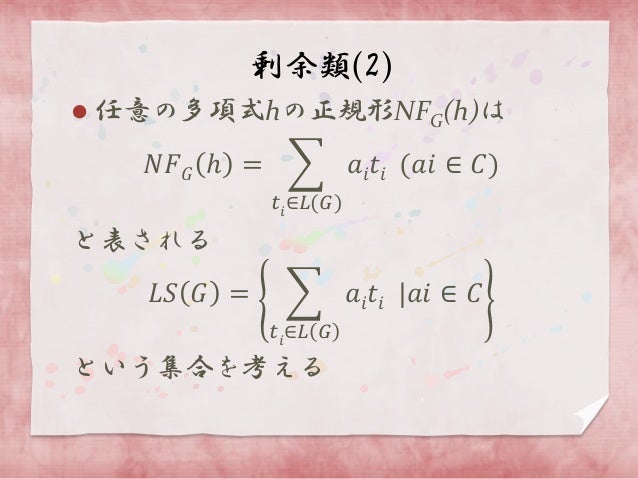 剰余類(2)
● 任意の多項式hの正規形NF_G(h)は
NF_G(h) = ∑_{t_i∈L(G)} a_i t_i (ai ∈ C)
と表される
LS(G) = {∑_{t_i∈L(G)} a_i t_i |ai ∈ C}
という集合を考える